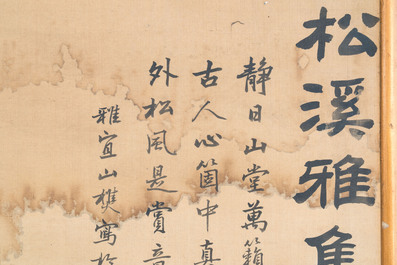 松溪雅集
静日山堂萬籟
古人心箇中真
外松風是賞音
雅宜山樵寫於